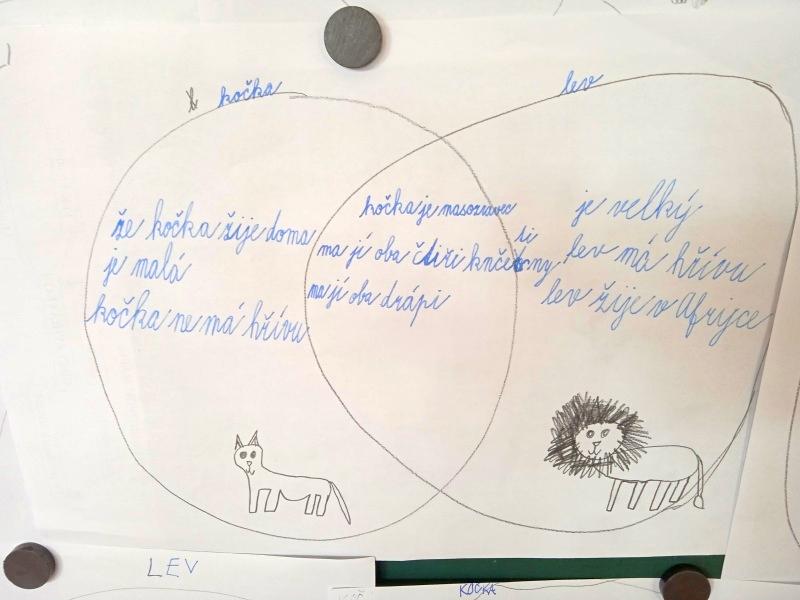 kočka
lev
že kočka žije doma
je malá
kočka ne má hřívu
kočka je masozravec
ma jí oba čtiři knče
ti
ny
ma jí oba drápi
je velký
lev má hřívu
lev žije v Afrijce
LEV
KOČKA